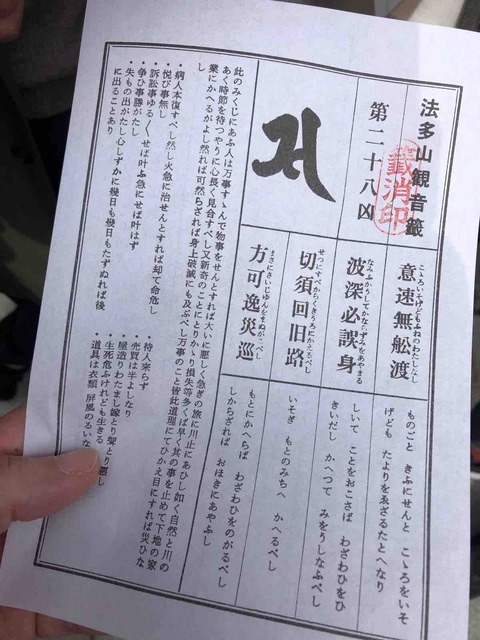 法多山観音籤
第二十八凶
籤消印
こゝろいそげどもふねのわたしなし
意速無舩渡
なみふかうしてかならずみをあやまる
波深必誤身
せつにすべからくきうろにかえるべし
切須回旧路
方可逸災巡
ものごと きふにせんと こゝろをいそ
げども たよりをゑざるたとへなり
しいて ことをおこさば わざわひをひ
きいだし かへつて みをうしなふべし
いそぎ もとのみちへ かへるべし
もとにかへらば わざわひをのがるべし
しからざれば おほきにあやふし
此のみくじにあふ人は万事すゝんで物事をせんとすれば大いに悪しく急ぎの旅に川止にあひし如く自然と川の
あく時節を待つやりに心長く見合すべし又新奇のことにとりかゝり損失等多くば早く其の事を止めて下地の家
業にかへるがよし然れば可然らざれば身上破滅にも及ぶべし万事のこと皆此道理にてひかえ目にすれば災ひな
し
・病人本復すべし然し火急に治せんとすれば却て命危し
・悦び事無し
・訴訟事ゆる〱せば叶ふ急にせば叶はず
・争ひ事勝がたし
・失もの出がたし心しずかに幾日も幾日もたずぬれば後
に出ることあり
・待人来らず
・売買は半よしなり
・屋造りわたまし嫁とり聟とり悪し
・生死危ふけれども生きる
・道具は衣類 屏風のるい